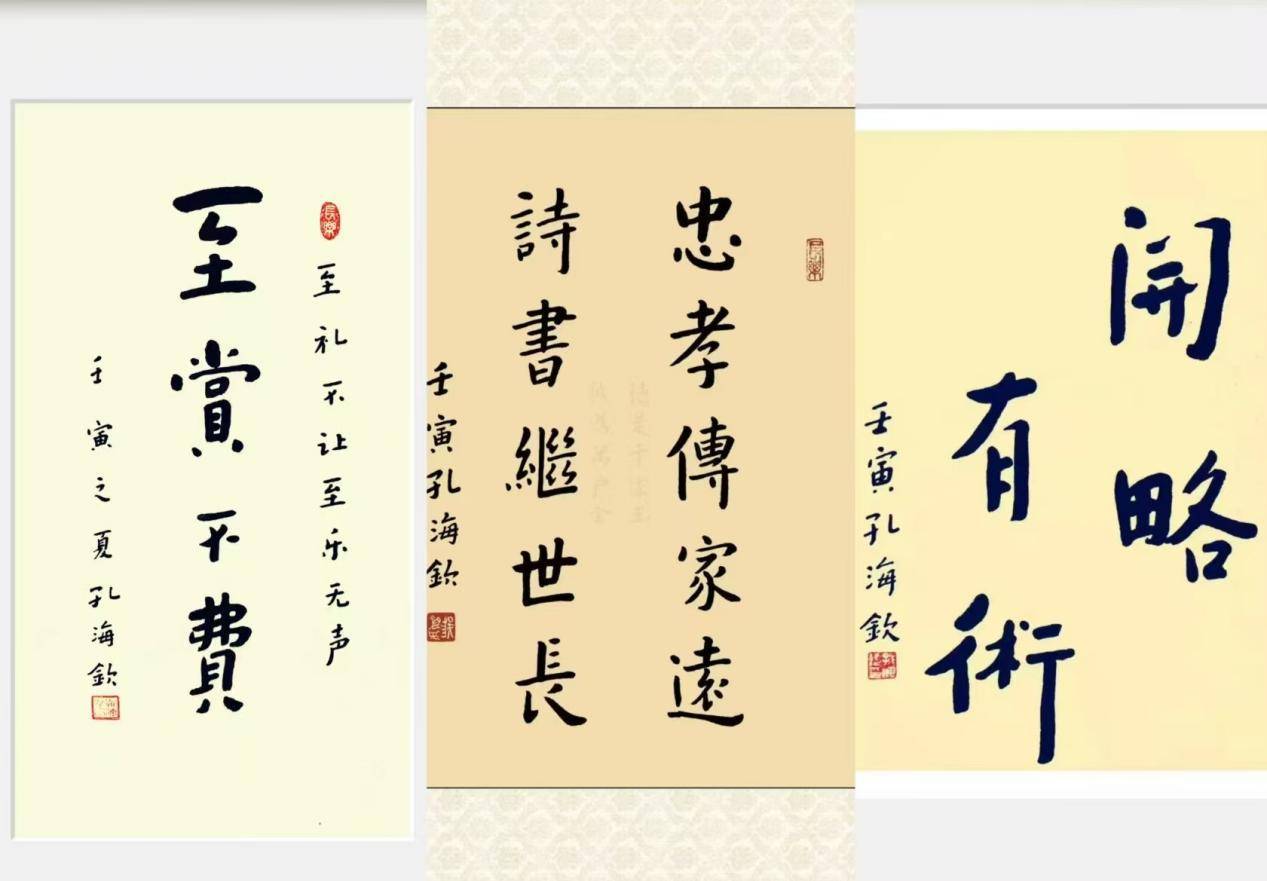 長樂
至礼不让至乐无声
至賞不費
壬寅之夏孔海欽
長樂
忠孝傳家遠
詩書繼世長
壬寅孔海欽
開略
有術
壬寅孔海欽